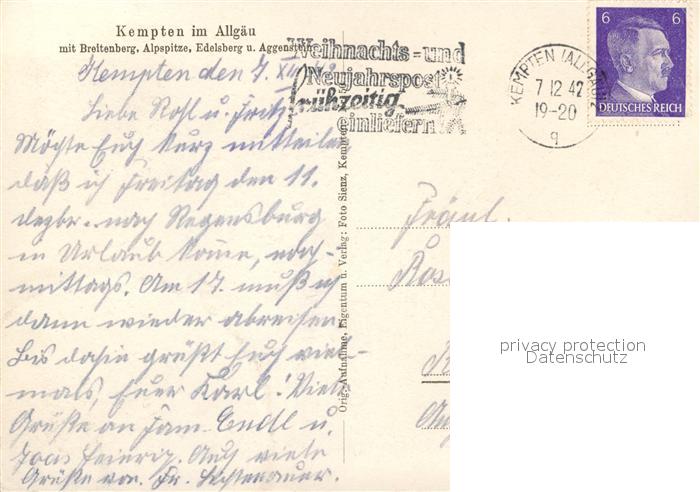 Kempten im Allgäu
mit Breitenberg, Alpspitze, Edelsberg u. Aggenstein
Weihnachts- und
Neujahrspost
frühzeitig
einliefern
KEMPTEN (ALLGÄU) 2
7 12 42
19-20
q
6 6
DEUTSCHES REICH
Kempten den 7. XII. 42
Liebe Rosl u. Fritz
Möchte Euch kurz mitteilen
daß ich Freitag den 11.
dezbr. nach Regensburg
in Urlaub komme, nach-
mittags. Am 17. muß ich
dann wieder abreisen.
Bis dahin grüßt Euch viel-
mals, Euer Karl! Viele
Grüße an Fam. Endl u.
Auch viele
Grüße von Fr.
Orig.-Aufnahme, Eigentum u. Verlag: Foto Sienz, Kempten
Fräul.
privacy protection
Datenschutz